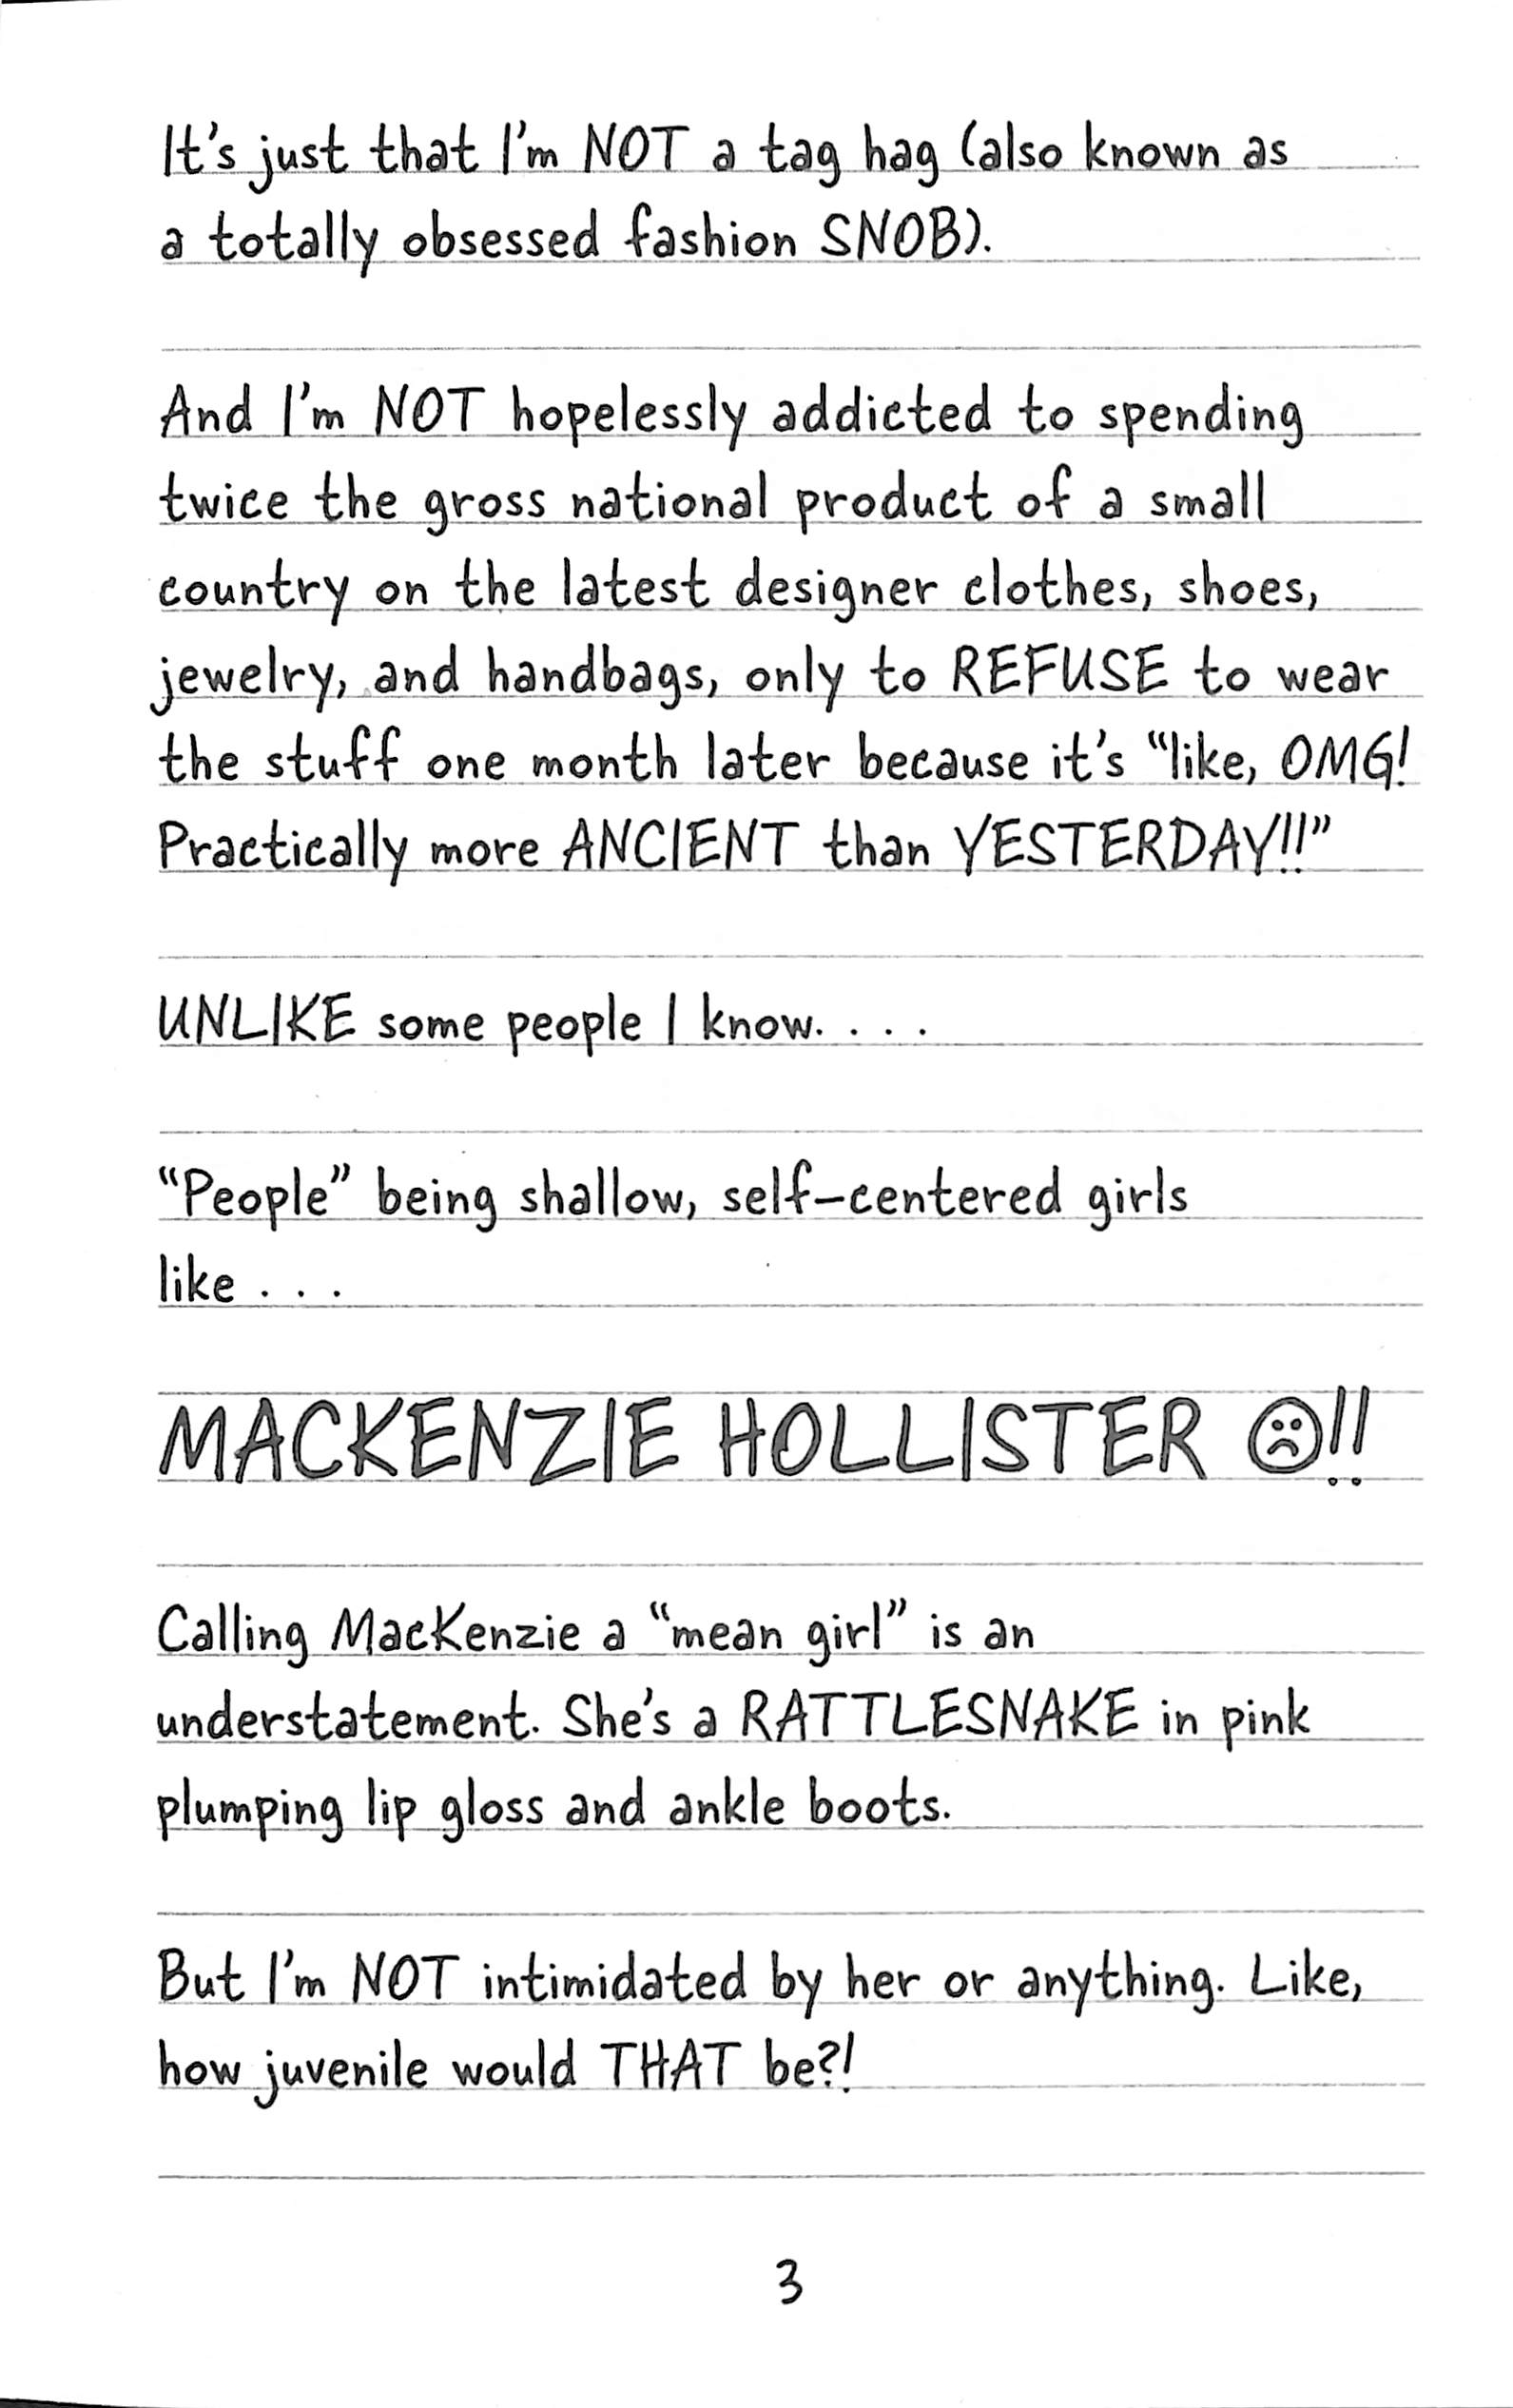 It's just that I'm NOT a tag hag (also known as
a totally obsessed fashion SNOB).
And I'm NOT hopelessly addicted to spending
twice the gross national product of a small
country on the latest designer clothes, shoes,
jewelry, and handbags, only to REFUSE to wear
the stuff one month later because it's “like, OMG!
Practically more ANCIENT than YESTERDAY!!”
UNLIKE some people I know. . . .
“People” being shallow, self-centered girls
like . . .
MACKENZIE HOLLISTER ☹!!
Calling MacKenzie a “mean girl” is an
understatement. She's a RATTLESNAKE in pink
plumping lip gloss and ankle boots.
But I'm NOT intimidated by her or anything. Like,
how juvenile would THAT be?!
3